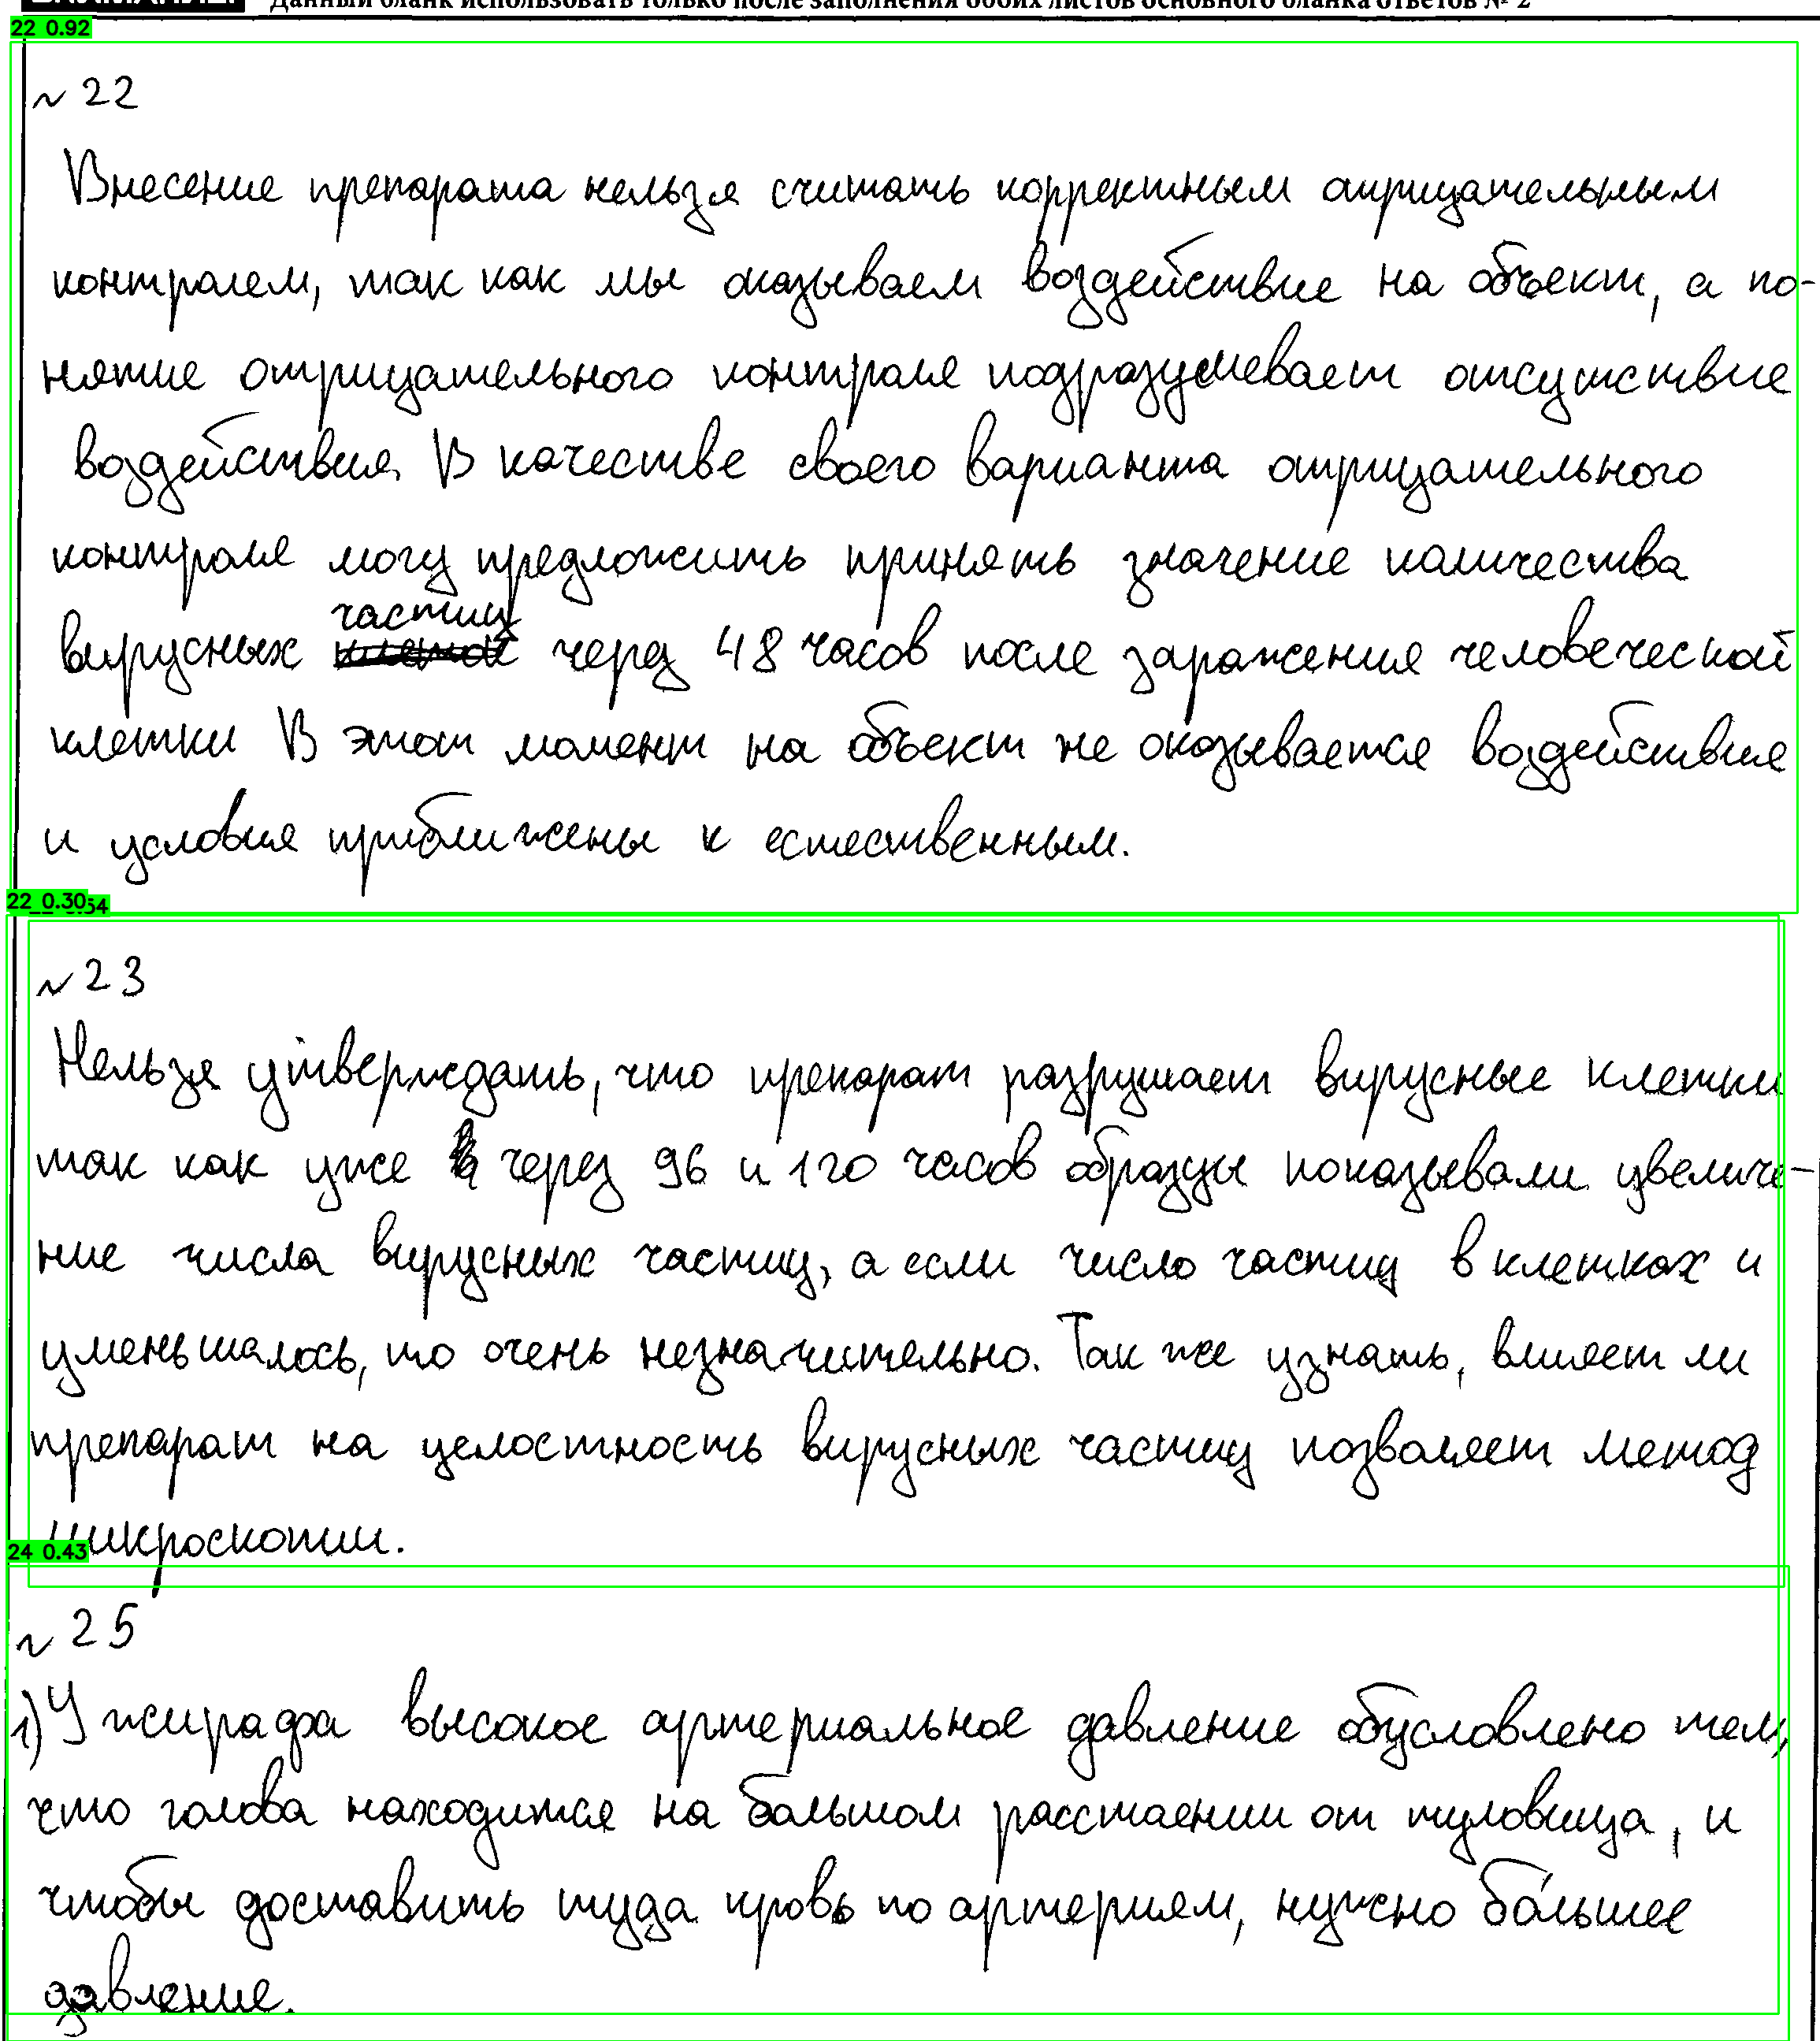 Данный бланк использовать только после заполнения обоих листов основного бланка ответов № 2
22 0.92
~ 22
Внесение препарата нельзя считать корректным отрицательным
контролем, так как мы оказываем воздействие на объект, а по-
нятие отрицательного контроля подразумевает отсутствие
воздействия. В качестве своего варианта отрицательного
контроля могу предложить принять значение количества
частиц
вирусных через 48 часов после заражения человеческой
клетки В этот момент на объект не оказывается воздействия
и условия приближены к естественным.
22 0.30
~ 23
Нельзя утверждать, что препарат разрушает вирусные клетки
так как уже через 96 и 120 часов образцы показывали увеличе-
ние числа вирусных частиц, а если число частиц в клетках и
уменьшалось, то очень незначительно. Так же узнать, влияет ли
препарат на целостность вирусных частиц позволяет метод
микроскопии.
24 0.43
~ 25
1) У жирафа высокое артериальное давление обусловлено тем,
что голова находится на большом расстаении от туловища, и
чтобы доставить туда кровь по артериям, нужно бо́льшее
давление.